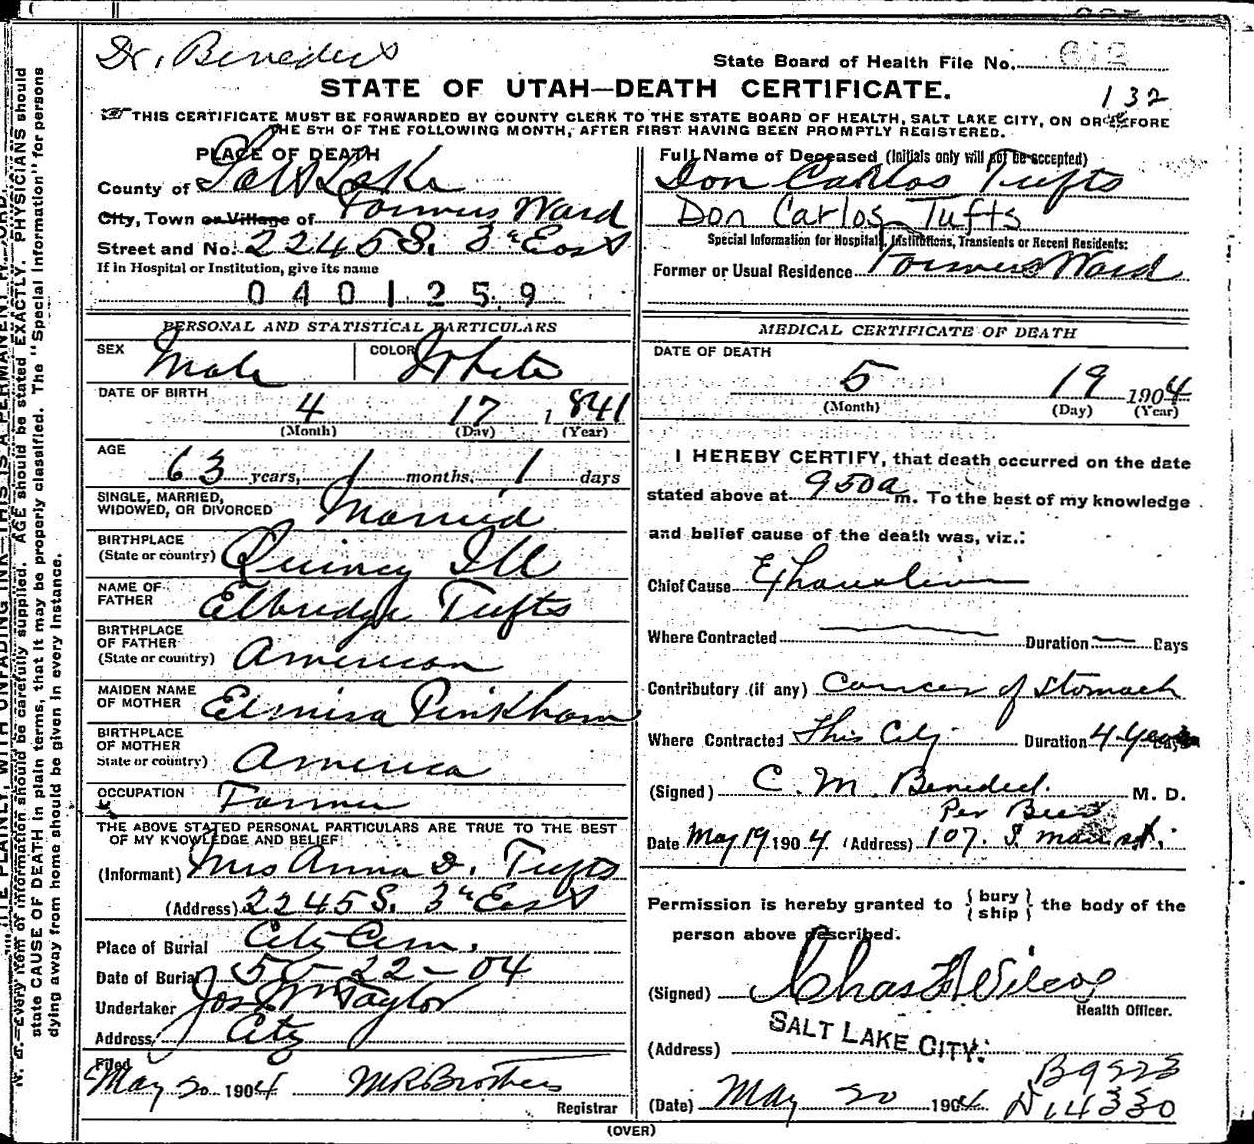 Dr. Benedict
State Board of Health File No.
STATE OF UTAH—DEATH CERTIFICATE.
132
THIS CERTIFICATE MUST BE FORWARDED BY COUNTY CLERK TO THE STATE BOARD OF HEALTH, SALT LAKE CITY, ON OR BEFORE
THE 5TH OF THE FOLLOWING MONTH, AFTER FIRST HAVING BEEN PROMPTLY REGISTERED.
PLACE OF DEATH
County of Salt Lake
City, Town or Village of Farmers Ward
Street and No. 2245 S. 3d East
If in Hospital or Institution, give its name
0401259
Full Name of Deceased (Initials only will not be accepted)
Don Carlos Tufts
Don Carlos Tufts
Special Information for Hospitals, Institutions, Transients or Recent Residents:
Former or Usual Residence Farmers Ward
PERSONAL AND STATISTICAL PARTICULARS
SEX Male COLOR White
DATE OF BIRTH
4 17 1841
(Month) (Day) (Year)
AGE
63 years, 1 months, 1 days
SINGLE, MARRIED,
WIDOWED, OR DIVORCED Married
BIRTHPLACE
(State or country) Quincy Ill
NAME OF
FATHER Elbridge Tufts
BIRTHPLACE
OF FATHER
(State or country) American
MAIDEN NAME
OF MOTHER Elmira Pinkham
BIRTHPLACE
OF MOTHER
State or country) America
OCCUPATION Farmer
THE ABOVE STATED PERSONAL PARTICULARS ARE TRUE TO THE BEST
OF MY KNOWLEDGE AND BELIEF
(Informant) Mrs Anna D. Tufts
(Address) 2245 S. 3d East
Place of Burial City Cem.
Date of Burial 5-22-04
Undertaker Jos Wm Taylor
Address City
Filed
May 20 1904 M R Brothers
Registrar
MEDICAL CERTIFICATE OF DEATH
DATE OF DEATH
5 19 1904
(Month) (Day) (Year)
I HEREBY CERTIFY, that death occurred on the date
stated above at 950a m. To the best of my knowledge
and belief cause of the death was, viz.:
Chief Cause Exhaustion
Where Contracted Duration Days
Contributory (if any) Cancer of Stomach
Where Contracted This City Duration 4 years
(Signed) C. M. Benedict. M. D.
Per
Date May 19 1904 (Address) 107. S. main st.
Permission is hereby granted to {bury
ship} the body of the
person above described.
(Signed) Chas F Wilcox
Health Officer.
(Address) SALT LAKE CITY.
(Date) May 20 1904
D 14330
(OVER)
state CAUSE OF DEATH in plain terms, that it may be properly classified. The "Special Information" for persons
dying away from home should be given in every instance.